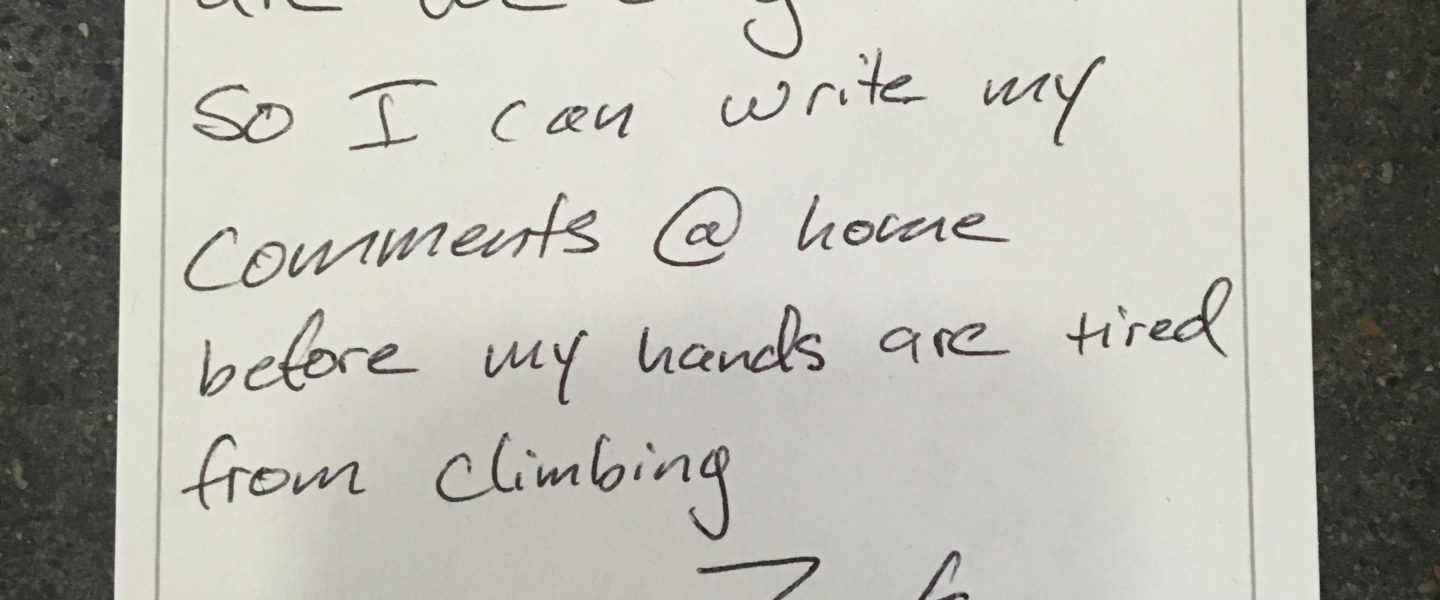 So I can write my
comments @ home
before my hands are tired
from climbing